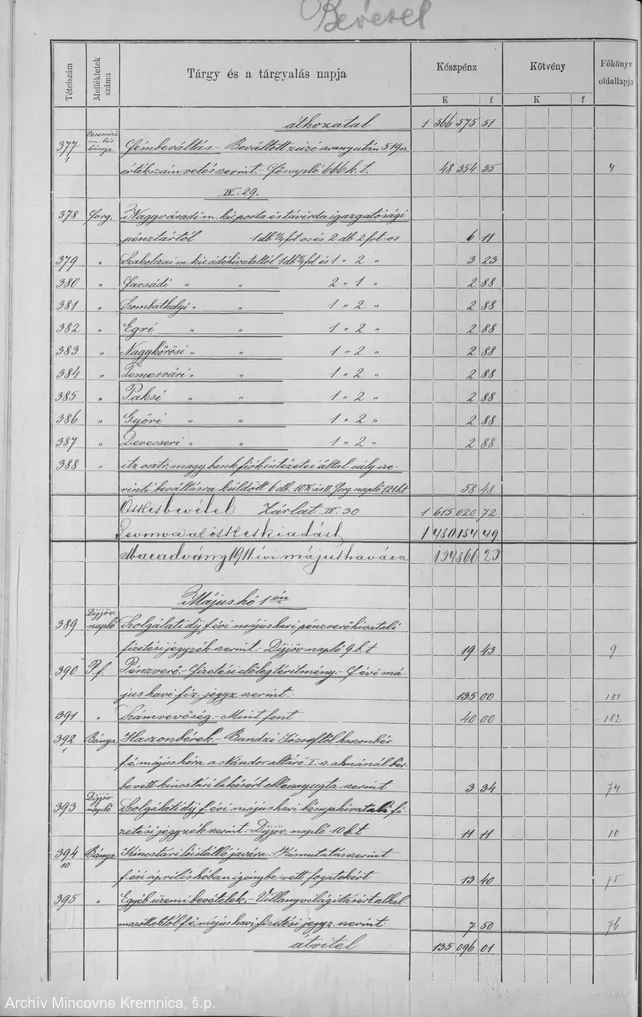 Bevétel
Tételszám
Mellékletek száma
Tárgy és a tárgyalás napja
Készpénz
Kötvény
Főkönyv oldallapja
K f
K f
áthozatal 1 566 575 51
377/1 Fémbeváltás.- Beváltott zúzó arany után 519
értékszámvetés szerint. Főnapló 666 k.t. 48 354 35 4
IV. 29.
378 Forg. Nagyváradi m. kir. posta és távirda igazgatósági
pénztártól 1 db ½ frt os és 2 db 2 frt os 6 11
379 " Szakolczai m. kir. adóhivataltól 1 db ½ frt és 1 " 2 " 3 23
380 " Facsádi " " 2 " 1 " 2 88
381 " Szombathelyi " " 1 " 2 " 2 88
382 " Egri " " 1 " 2 " 2 88
383 " Nagykőrösi " " 1 " 2 " 2 88
384 " Temesvári " " 1 " 2 " 2 88
385 " Paksi " " 1 " 2 " 2 88
386 " Győri " " 1 " 2 " 2 88
387 " Devecseri " " 1 " 2 " 2 88
388 " Az osztr. magy. bank fiókintézetei által súly sze-
rinti beváltásra küldött 6 db. 10 K Forg. napló 121 k.t 58 48
Össztes bevétel Zárlat IV. 30 1 615 020 72
Levonva az össztes kiadást 1 480 154 49
Maradvány 1911. évi május havára 134 866 23
Május hó 1 én
389 Díjjöv. napló Szolgálati díj f. évi május havi pénzverőhivatali
fizetési jegyzék szerint.- Díjjöv. napló 9 k.t 19 43 9
390 P.f. Pénzverő.- Fizetési előleg térítmény.- F. évi má-
jus havi fiz. jegyz. szerint.- 135 00 181
391 " Számvevőség.- Mint fent 40 00 182
392/1 Bánya Haszonbérek.-
f. é. május hóra a Nándor altáró I. sz. aknánál
bevett kincstári lakásért ellennyugta szerint 3 34 74
393 Díjjöv. napló Szolgálati díj f. évi május havi hivatali fi-
zetési jegyzék szerint.- Díjjöv. napló 10 k.t 11 11 10
394/10 Bánya Kincstári lóistálló javára. Kimutatás szerint
f. évi április hóban igénybe vett fogatokért 13 40 75
395 " Egyéb üzemi bevételek.- Villanyvilágításért alkal-
mazottaktól f. é. május havi fizetési jegyz. szerint 7 50 76
átvitel 135 096 01
Archív Mincovne Kremnica, š.p.